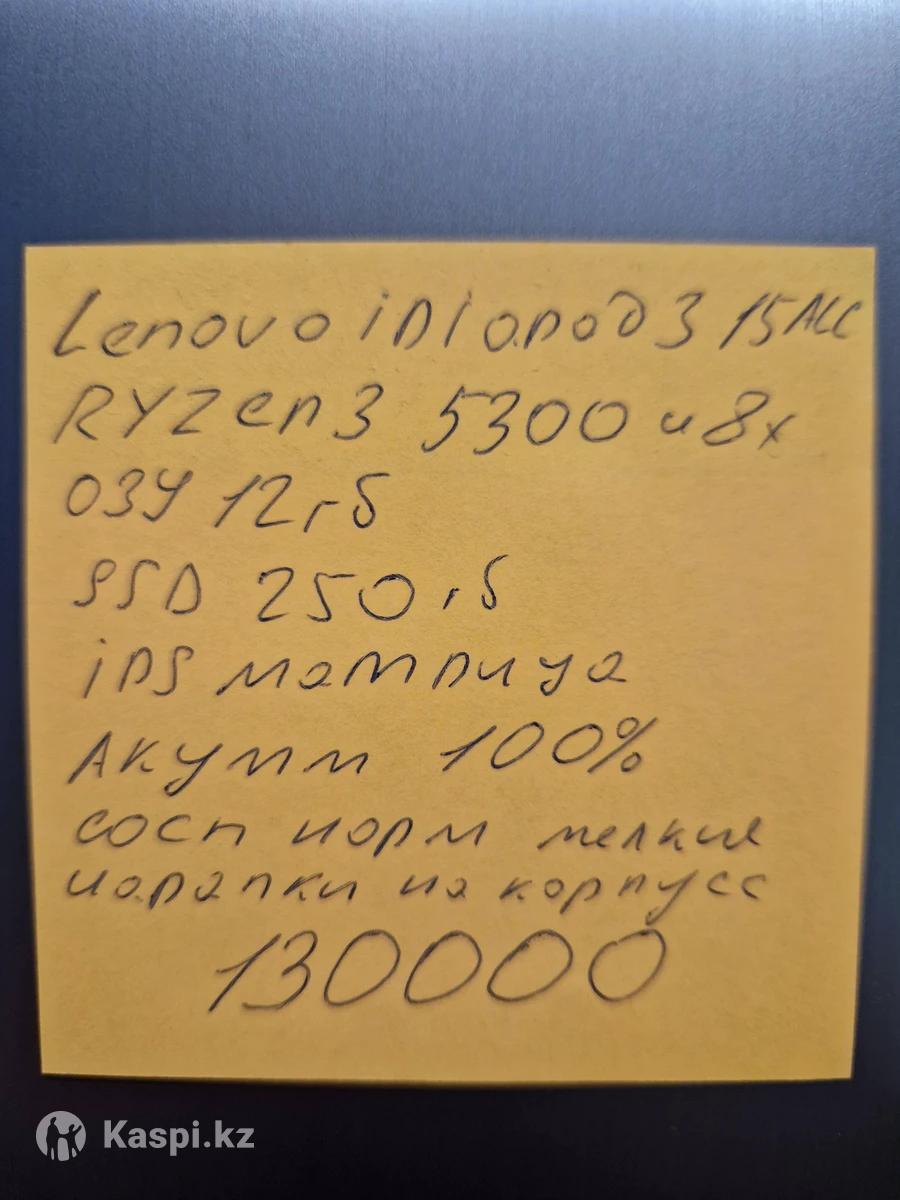 Lenovo iDiaпод 3 15ALC
RYZen 3 5300u 8x
ОЗУ 12гб
SSD 250гб
iPS матрица
Акумм 100%
сост норм мелкие
царапки на корпусе
130000
Kaspi.kz